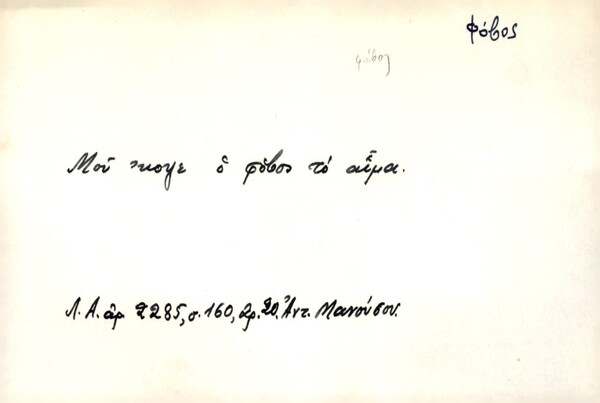 Φόβος
φόβος
Μοῦ 'κοψε ὁ φόβος τό αἷμα.
Λ. Α. ἀρ. 2285, σ. 160, ἀρ. 20. Ἀντ. Μανούσου.